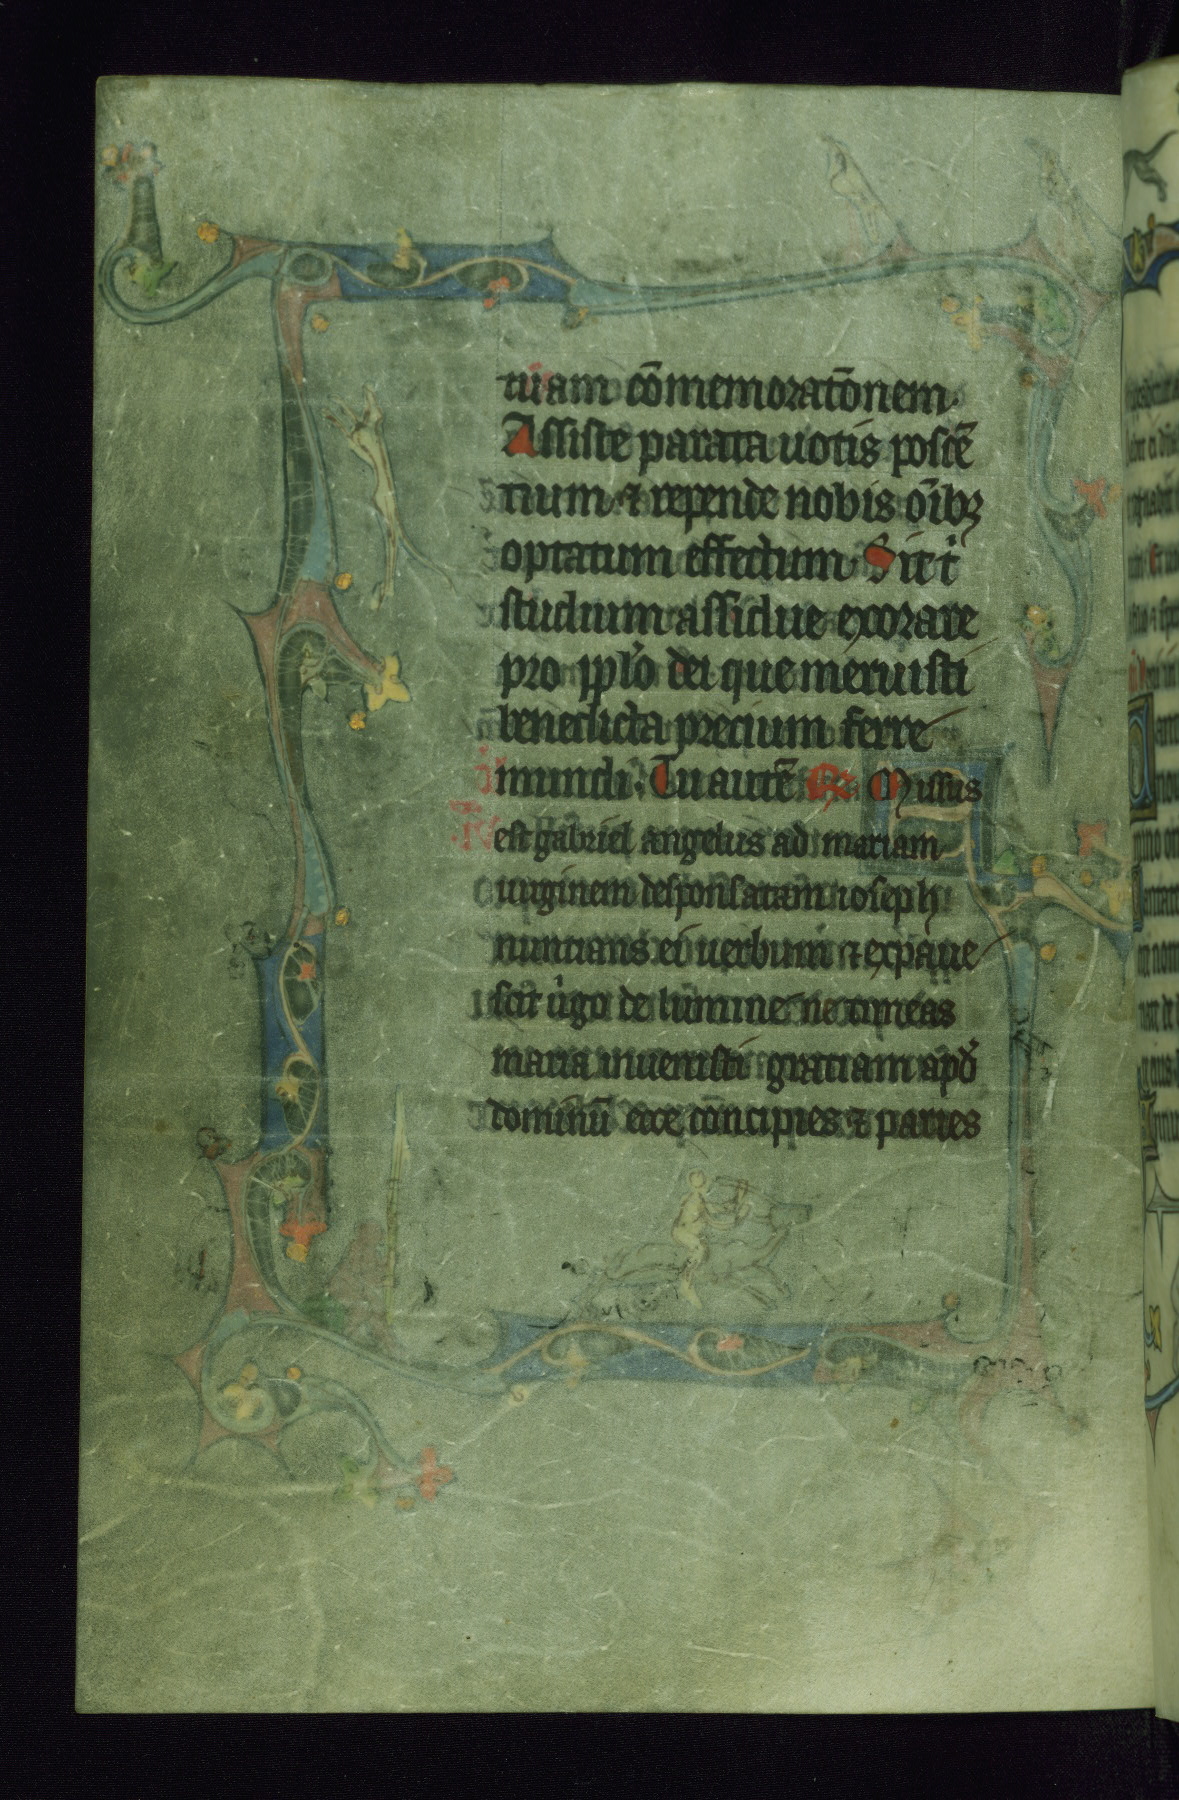 tuam cōmemoratōnem.
Assiste parata uotis poscē
tium ⁊ repende nobis oībꝫ
optatum effectum. Sit t̄
studium assidue exorare
pro pplo dei que meruisti
benedicta precium ferre
mundi. Tu autē ℟. Missus
est gabriel angelus ad mariam
uirginem desponsatam ioseph
nuntians ei uerbum ⁊ expaue
scit uigo de lumine ne timeas
maria inuenisti gratiam apd
dominū ecce cōncipies ⁊ paries